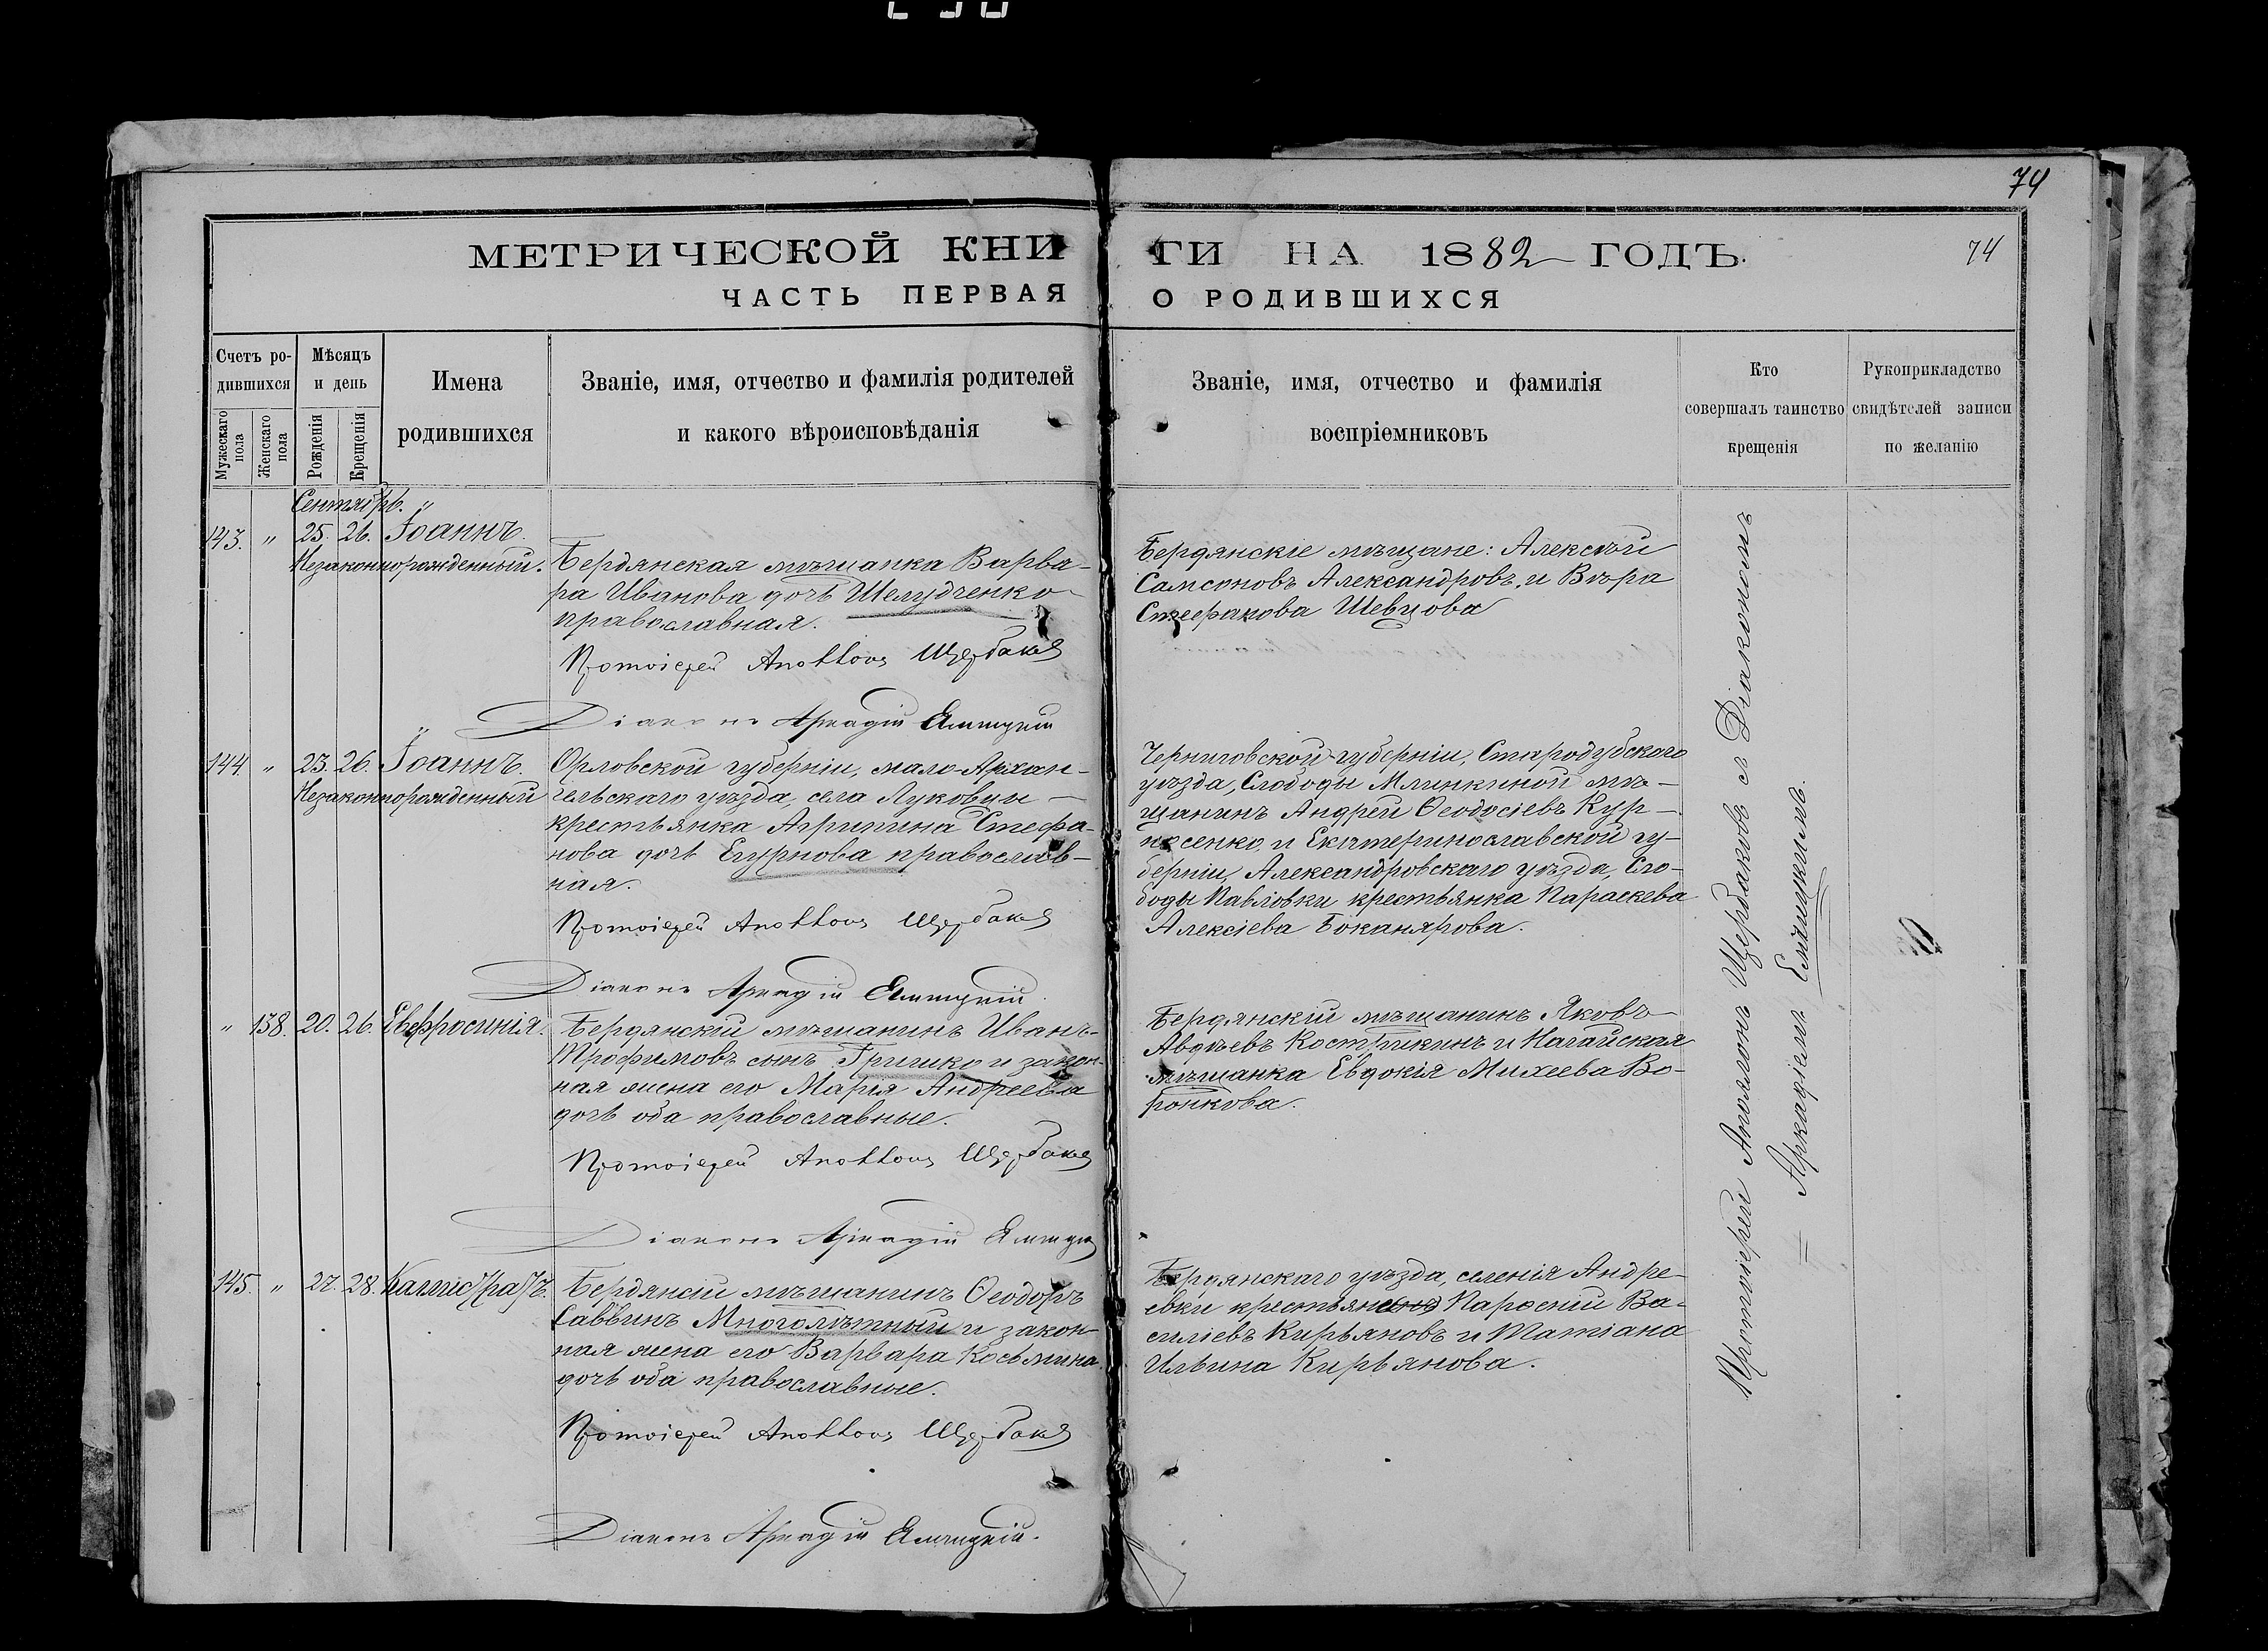 74
МЕТРИЧЕСКОЙ КНИ
ГИ НА 1882 ГОДЪ.
74
ЧАСТЬ ПЕРВАЯ
О РОДИВШИХСЯ
Счетъ ро-
дившихся
Мужескаго
пола
Женскаго
пола
Мѣсяцъ
и день
Рожденія
Крещенія
Имена
родившихся
Званіе, имя, отчество и фамилія родителей
и какого вѣроисповѣданія
Званіе, имя, отчество и фамилія
воспріемниковъ
Кто
совершалъ таинство
крещенія
Рукоприкладство
свидѣтелей записи
по желанію
Сентябрь.
143. " 25. 26. Іоаннъ.
Незаконнорожденный.
Бердянская мѣщанка Варва-
ра Иванова дочь Шелудченко
православная.
Протоіерей Аполлонъ Щербаковъ
Діаконъ Аркадій
Бердянскіе мѣщане: Алексѣй
Самсоновъ Александровъ, и Вѣра
Стефанова Шевцова
144. " 23. 26. Іоаннъ.
Незаконнорожденный
Орловской губерніи, мало-Архан-
гельскаго уѣзда, села Луковцы
крестьянка Агрипина Стефа-
нова дочь Егурнова православ-
ная.
Протоіерей Аполлонъ Щербаковъ
Діаконъ Аркадій
Черниговской губерніи, Стародубскаго
уѣзда, Слободы Млинкиной мѣ-
щанинъ Андрей Ѳеодосіевъ Кур-
носенко, и Екатеринославской гу-
берніи, Александровскаго уѣзда, Сло-
боды Павловки крестьянка Параскева
Алексіева Боканярова.
" 138. 20. 26. Евфросинія.
Бердянскій мѣщанинъ Иванъ
Трофимовъ сынъ Гришко и закон-
ная жена его Марія Андреева
дочь оба православные.
Протоіерей Аполлонъ Щербаковъ
Діаконъ Аркадій
Бердянскій мѣщанинъ Яковъ
Авдѣевъ Кострикинъ и Нагайская
мѣщанка Евдокія Михеева Во-
ронкова.
145. " 27. 28. Каллистратъ.
Бердянсій мѣщанинъ Ѳеодоръ
Саввинъ Многолѣтный и закон-
ная жена его Варвара Косьмина
дочь оба православные.
Протоіерей Аполлонъ Щербаковъ
Діаконъ Аркадій
Бердянскаго уѣзда, селенія Андре-
евки крестьяне Василіевъ Кирьяновъ и Татіана
Ильина Кирьянова.
Протоіерей Аполлонъ Щербаковъ съ Діакономъ
= Аркадіемъ